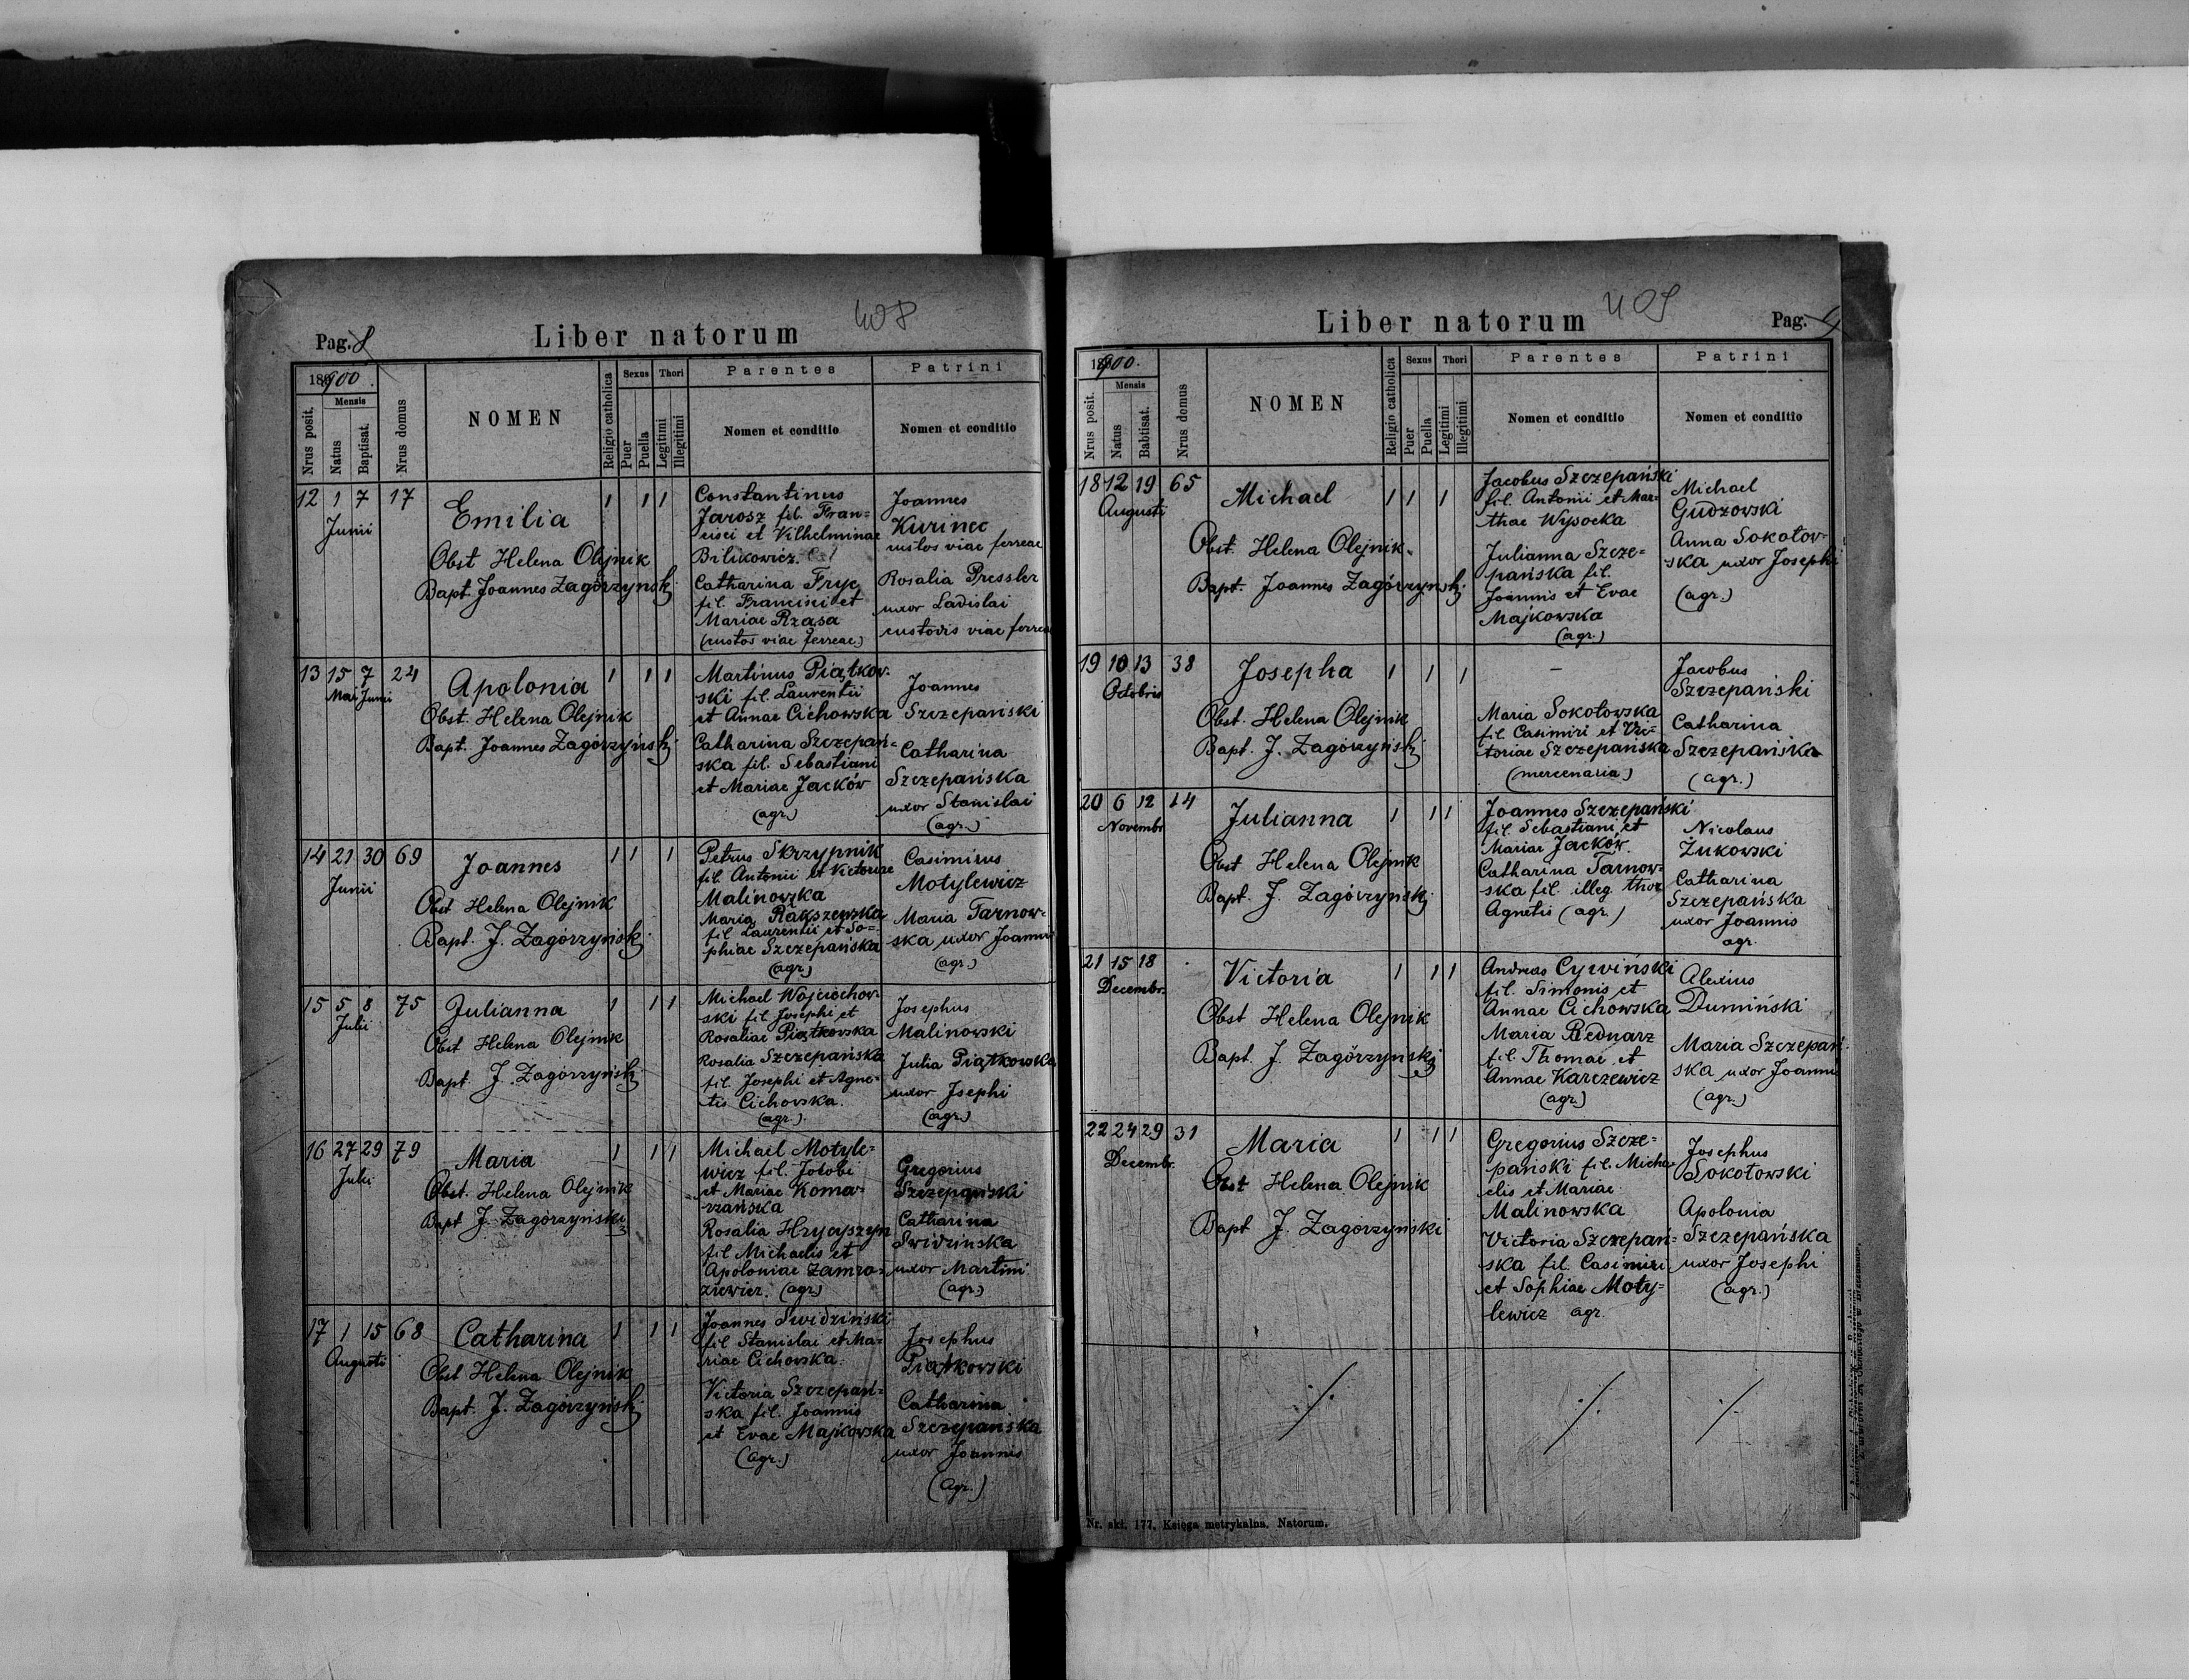 408
Pag. 8
Liber natorum
1900.
Nrus posit.
Mensis
Natus
Baptisat.
Nrus domus
NOMEN
Religio catholica
Sexus
Puer
Puella
Thori
Legitimi
Illegitimi
Parentes
Nomen et conditio
Patrini
Nomen et conditio
12 1 7 17
Junii
Emilia
Obst Helena Olejnik
Bapt. Joannes Zagórzynski
1 1 1
Constantinus
Jarosz fil. Fran=
cisci et Vilhelminae
Bilikowicz
Catharina Fryc
fil. Francisci et
Mariae Rząsa
(custos viae ferreae)
Joannes
Kurinec
custos viae ferreae
Rosalia Pressler
uxor Ladislai
custodis viae ferreae
13 15 7 24
Mai Junii
Apolonia
Obst. Helena Olejnik
Bapt. Joannes Zagórzyński
1 1 1
Martinus Piątkow-
ski fil. Laurentii
et Annae Cichowska
Catharina Szczepań=
ska fil. Sebastiani
et Mariae Jacków
(agr.)
Joannes
Szczepański
Catharina
Szczepańska
uxor Stanislai
(agr.)
14 21 30 69
Junii
Joannes
Obst Helena Olejnik
Bapt. J. Zagórzyński
1 1 1
Petrus Skrzypnik
fil. Antonii et Victoriae
Malinowska
Maria Rakszewska
fil Laurentii et So=
phiae Szczepańska
(agr.)
Casimirus
Motylewicz
Maria Tarnow-
ska uxor Joannis
(agr.)
15 5 8 75
Julii
Julianna
Obst Helena Olejnik
Bapt. J. Zagórzyński
1 1 1
Michael Wojciechow-
ski fil. Josephi et
Rosaliae Piątkowska
Rosalia Szczepańska
fil. Josephi et Agne=
tis Cichowska.
(agr.)
Josephus
Malinowski
Julia Piątkowska
uxor Josephi
(agr.)
16 27 29 79
Julii
Maria
Obst. Helena Olejnik
Bapt J. Zagórzyński
1 1 1
Michael Motyle=
wicz fil. Jakobi
et Mariae Koma-
rzańska
Rosalia Hrycyszyn
fil Michaelis et
Apoloniae Zamro=
ziewicz. (agr.)
Gregorius
Szczepański
Catharina
Świdzinska
uxor Martini
(agr.)
17 1 15 68
Augusti
Catharina
Obst Helena Olejnik
Bapt. J. Zagórzyński
1 1 1
Joannes Świdziński
fil Stanislai et Ma=
riae Cichowska.
Victoria Szczepań=
ska fil. Joannis
et Evae Majkowska
(agr.)
Josephus
Piątkowski
Catharina
Szczepanska
uxor Joannis
(agr.)
409
Liber natorum
Pag. 9
1900.
Nrus posit.
Mensis
Natus
Babtisat.
Nrus domus
NOMEN
Religio catholica
Sexus
Puer
Puella
Thori
Legitimi
Illegitimi
Parentes
Nomen et conditio
Patrini
Nomen et conditio
18 12 19 65
Augusti
Michael
Obst. Helena Olejnik.
Bapt. Joannes Zagórzynski
1 1 1
Jacobus Szczepański
fil. Antonii et Mar=
thae Wysocka
Julianna Szcze=
pańska fil.
Joannis et Evae
Majkowska
(agr.)
Michael
Gudzowski
Anna Sokołow-
ska uxor Josephi
(agr.)
19 10 13 38
Octobris
Josepha
Obst. Helena Olejnik
Bapt. J. Zagórzyński
1 1 1
—
Maria Sokołowska
fil. Casimiri et Vic=
toriae Szczepańska
(mercenaria)
Jacobus
Szczepański
Catharina
Szczepańska
(agr.)
20 6 12 14
Novembr.
Julianna
Obst Helena Olejnik
Bapt. J. Zagórzynski
1 1 1
Joannes Szczepański
fil. Sebastiani et
Mariae Jacków
Catharina Tarnow=
ska fil. illeg. thor
Agnetis (agr.)
Nicolaus
Żukowski
Catharina
Szczepańska
uxor Joannis
agr.
21 15 18
Decembr.
Victoria
Obst Helena Olejnik
Bapt. J. Zagórzyński
1 1 1
Andreas Cywiński
fil. Simonis et
Annae Cichowska
Maria Bednarz
fil. Thomae et
Annae Karczewicz
(agr.)
Alexius
Dumiński
Maria Szczepań-
ska uxor Joannis
(agr.)
22 24 29 31
Decembr.
Maria
Obst Helena Olejnik
Bapt J. Zagórzyński
1 1 1
Gregorius Szcze=
pański fil. Micha-
elis et Mariae
Malinowska
Victoria Szczepań=
ska fil. Casimiri
et Sophiae Moty=
lewicz agr.
Josephus
Sokołowski
Apolonia
Szczepańska
uxor Josephi
(agr.)
Nr. skł. 177. Księga metrykalna. Natorum.